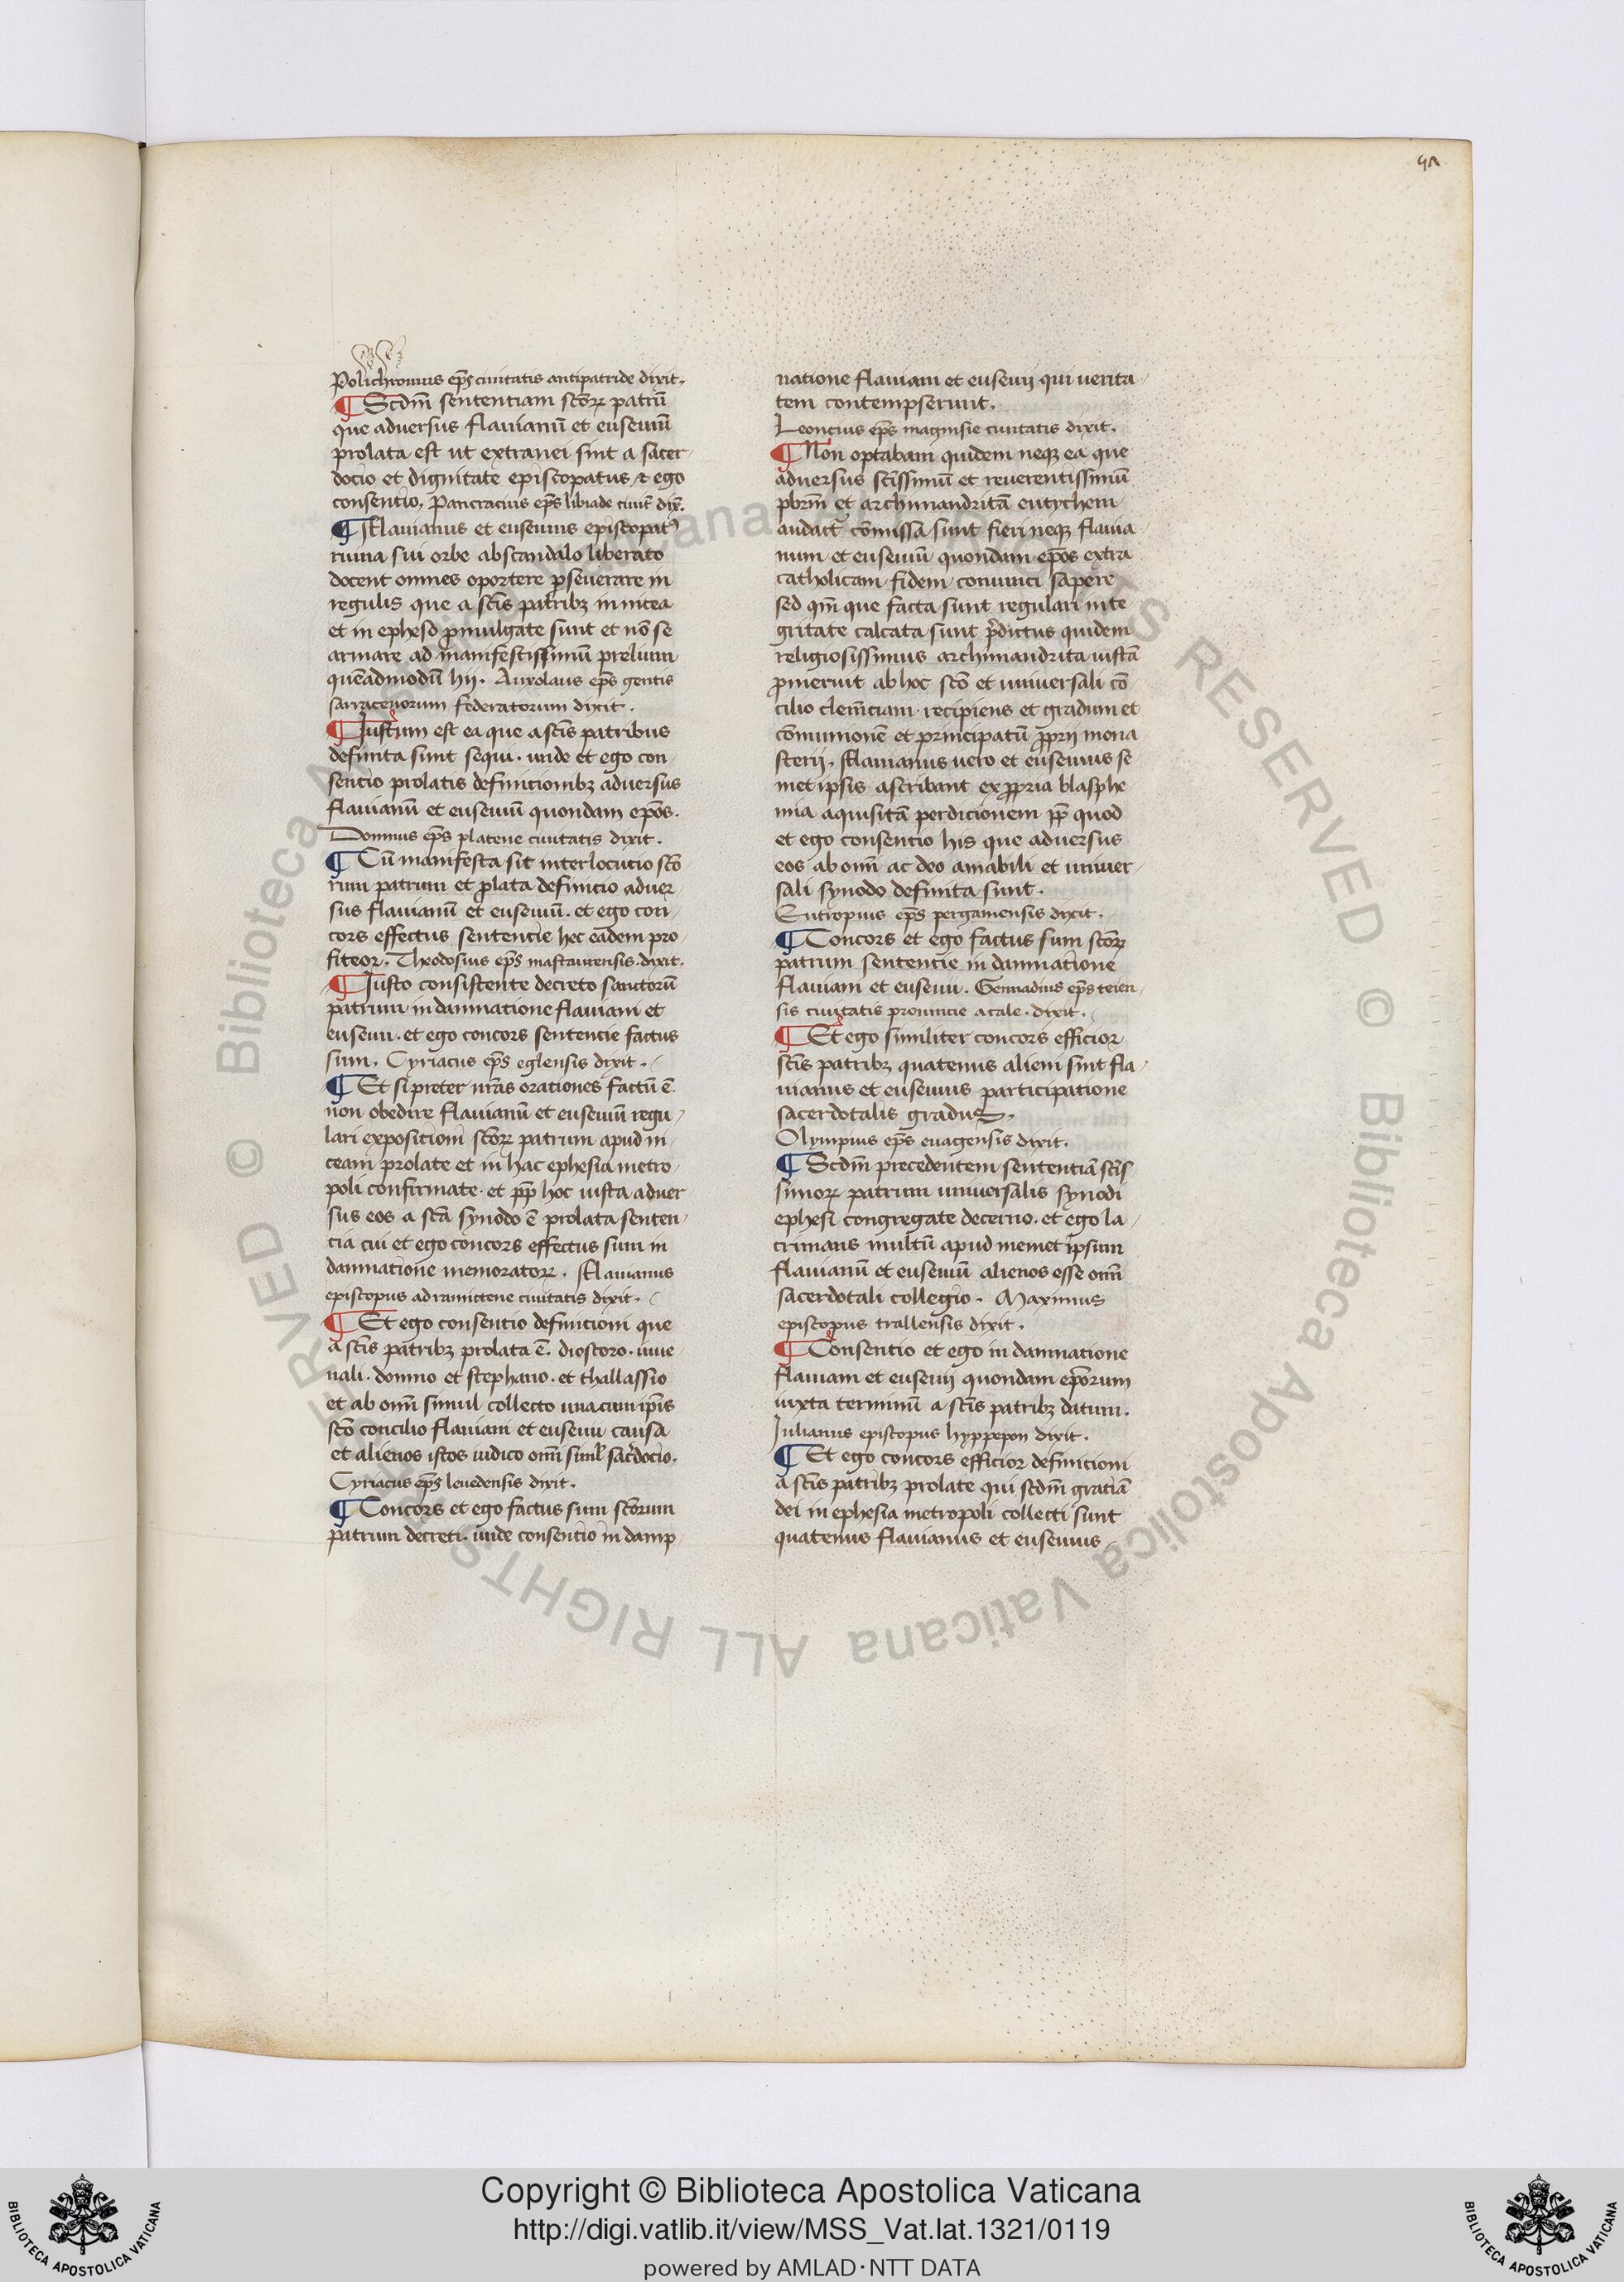 Polichronius ep̄s ciuitatis antipatride dixit.
¶ Scdm̄ sententiam sc̄oꝝ patrū
que aduersus flauianū et euseuiū
prolata est ut extranei sint a sacer
docio et dignitate episcopatus ⁊ ego
consentio. Pancracius ep̄s libiade ciuit̄ dix̄.
¶ Flauianus et euseuius episcopat᷒
ruina sui orbe ab scandalo liberato
docent omnes oportere ꝑseuerare in
regulis que a sc̄is patribꝫ in nicea
et in epheso ꝓmulgate sunt et nō se
armare ad manifestissimū prelium
quēadmodū hij. Auxolaus ep̄s gentis
sarracenorum federatorum dixit.
¶ Iustum est ea que a sc̄is patribus
definita sunt sequi. unde et ego con
sencio prolatis definicionibꝫ aduersus
flauianū et euseuiū quondam ep̄os.
Domnus ep̄s platene ciuitatis dixit.
¶ Cū manifesta sit interlocutio sc̄o
rum patrum et ꝓlata definicio aduer
sus flauianū et euseuiū. et ego con
cors effectus sentencie hec eadem pro
fiteor. Theodosius ep̄s mastaurensis. dixit.
¶ Iusto consistente decreto sanctorū
patrum in damnatione flauiani et
euseuii. et ego concors sentencie factus
sum. Cyriacus ep̄s eglensis dixit.
¶ Et si preter nr̄as orationes factū ē
non obedire flauianū et euseuiū regu
lari expositioni sc̄oꝝ patrum apud ni
ceam prolate et in hac ephesia metro
poli confirmate. et ꝓp̄ hoc iusta aduer
sus eos a sc̄a synodo ē prolata senten
cia cui et ego concors effectus sum in
damnatione memoratoꝝ. Flauianus
episcopus adramictene ciuitatis dixit.
¶ Et ego consentio definicioni que
a sc̄is patribꝫ prolata ē. dioscoro. iuue
nali. domno et stephano. et thallassio
et ab om̄i simul collecto una cum ip̄is
sc̄o concilio flauiani et euseuii causa
et alienos istos iudico om̄i siml̄ sac̄docio.
Cyriacus ep̄s leuedensis dixit.
¶ Concors et ego factus sum sc̄orum
patrum decreti. unde consentio in damp
natione flauiani et euseuij qui uerita
tem contempserunt.
Leoncius ep̄s magnisie ciuitatis dixit.
¶ Non optabam quidem neqꝫ ea que
aduersus sc̄issimū et reuerentissimū
pb̄rm̄ et archimandritā eutychem
audact᷒ cōmissa sunt fieri neqꝫ flauia
num et euseuiū quondam ep̄os extra
catholicam fidem conuinci sapere
sed qm̄ que facta sunt regulari inte
gritate calcata sunt p̄dictus quidem
religiosissimus archimandrita iustā
ꝓmeruit ab hoc sc̄o et uniuersali cō
cilio clem̄ciam. recipiens et gradum et
cōmunionē et principatū ꝓprij mona
sterij. Flauianus uero et euseuius se
met ipsis ascribant ex ꝓpria blasphe
mia aquisitā perdicionem ꝓp̄ quod
et ego consencio his que aduersus
eos ab om̄i ac deo amabili et uniuer
sali synodo definita sunt.
Eutropius ep̄s pergamensis dixit.
¶ Concors et ego factus sum sc̄oꝝ
patrum sentencie in damnatione
flauiani et euseuii. Gennadius ep̄s teien
sis ciuitatis prouincie acale. dixit.
¶ Et ego similiter concors efficior
sc̄is patribꝫ quatenus alieni sint fla
uianus et euseuius participatione
sacerdotalis gradus.
Olympius ep̄s euagensis dixit.
¶ Scdm̄ precedentem sententiā sc̄is
simoꝝ patrum uniuersalis synodi
ephesi congregate decerno. et ego la
crimans multū apud memet ipsum
flauianū et euseuiū alienos esse om̄i
sacerdotali collegio. Maximus
episcopus trallensis dixit.
¶ Consentio et ego in damnatione
flauiani et euseuij quondam ep̄orum
iuxta terminū a sc̄is patribꝫ datum.
Iulianus episcopus hyppepon dixit.
¶ Et ego concors efficior definitioni
a sc̄is patribꝫ prolate qui scdm̄ gratiā
dei in ephesia metropoli collecti sunt
quatenus flauianus et euseuius
Copyright © Biblioteca Apostolica Vaticana
http://digi.vatlib.it/view/MSS_Vat.lat.1321/0119
powered by AMLAD·NTT DATA